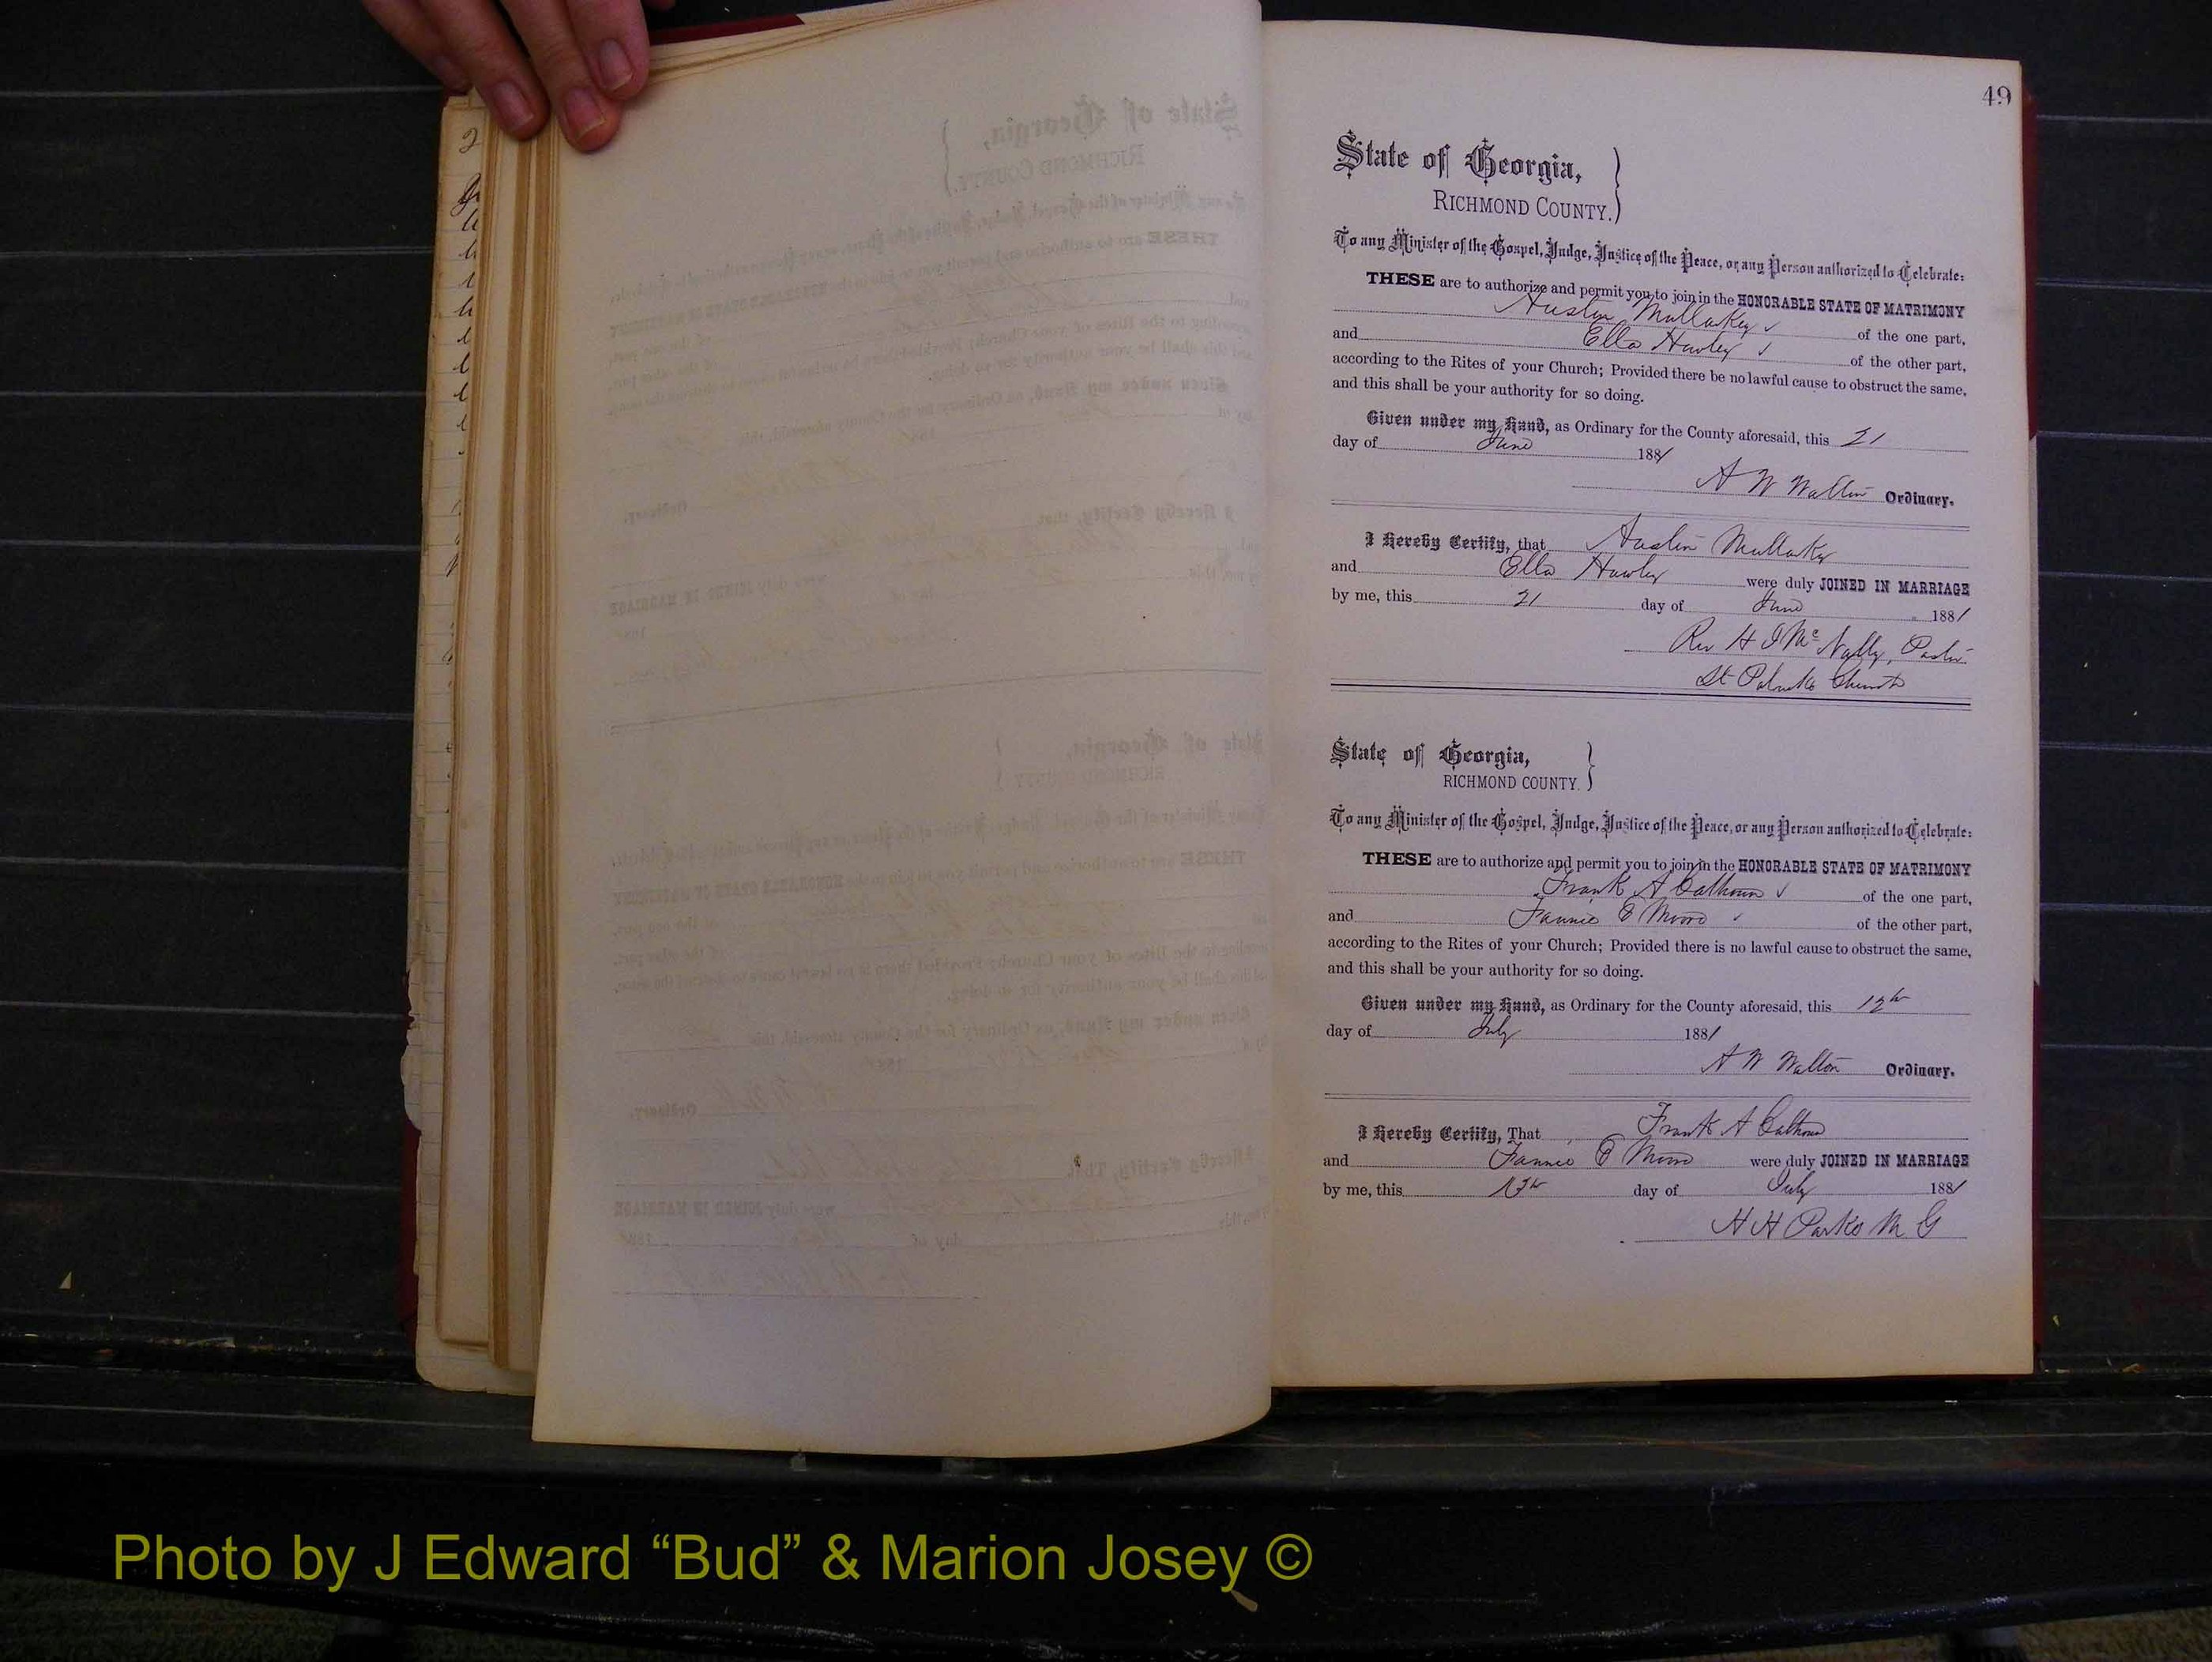 49
State of Georgia,
RICHMOND COUNTY.
To any Minister of the Gospel, Judge, Justice of the Peace, or any Person authorized to Celebrate:
THESE are to authorize and permit you to join in the HONORABLE STATE OF MATRIMONY
Austin Mullarkey of the one part,
and Ella Hawley of the other part,
according to the Rites of your Church; Provided there be no lawful cause to obstruct the same,
and this shall be your authority for so doing.
Given under my Hand, as Ordinary for the County aforesaid, this 21
day of June 1881
A W Walton Ordinary.
I Hereby Certify, that Austin Mullarky
and Ella Hawley were duly JOINED IN MARRIAGE
by me, this 21 day of June 1881
Rev H J McNally, Pastor
St Patricks Church
State of Georgia,
RICHMOND COUNTY.
To any Minister of the Gospel, Judge, Justice of the Peace, or any Person authorized to Celebrate:
THESE are to authorize and permit you to join in the HONORABLE STATE OF MATRIMONY
Frank A Calhoun of the one part,
and Fannie E Moore of the other part,
according to the Rites of your Church; Provided there is no lawful cause to obstruct the same,
and this shall be your authority for so doing.
Given under my Hand, as Ordinary for the County aforesaid, this 12th
day of July 1881
A W Walton Ordinary.
I Hereby Certify, That Frank A Calhoun
and Fannie E Moore were duly JOINED IN MARRIAGE
by me, this 13th day of July 1881
H H Parks M. G
Photo by J Edward “Bud” & Marion Josey ©